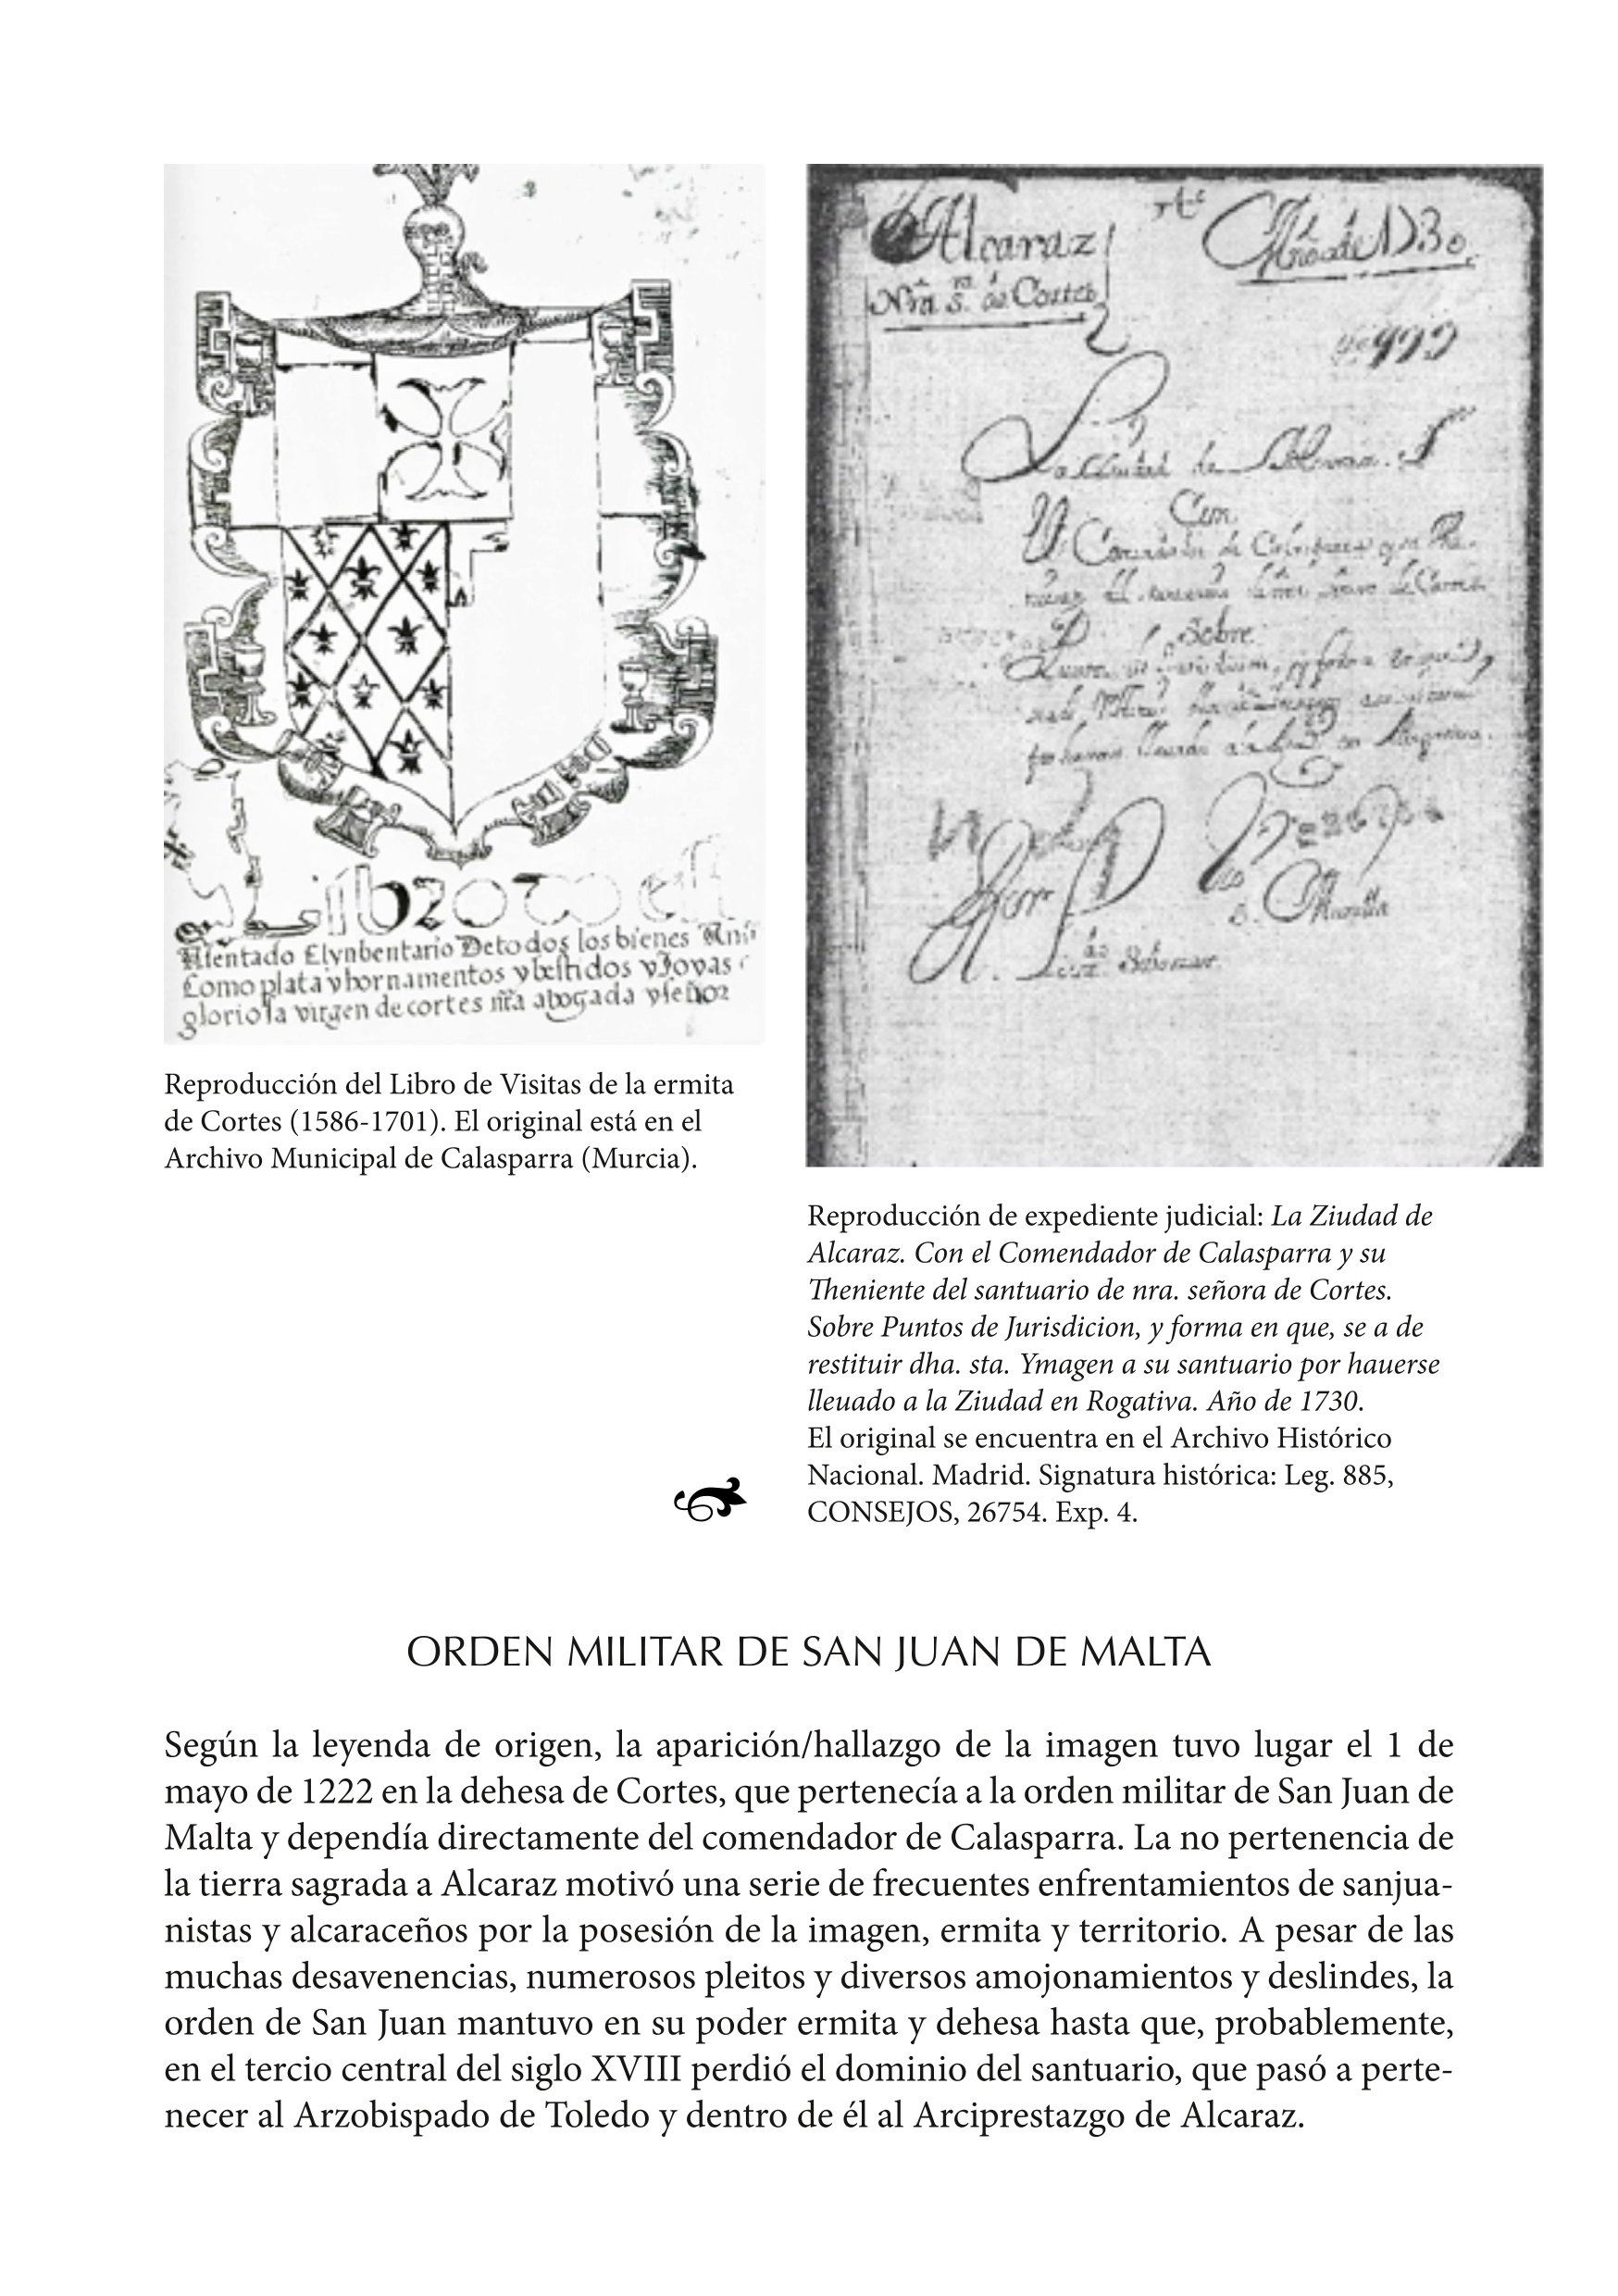 Libro
Asentado Elynbentario Detodos los bienes
Como plata y hornamentos y bestidos y Joyas
gloriosa virgen de cortes nra abogada y señor
Reproducción del Libro de Visitas de la ermita
de Cortes (1586-1701). El original está en el
Archivo Municipal de Calasparra (Murcia).
Alcaraz
Nra Sra de Cortes
Año de 1730
La Ziudad de
Con
Sobre
Reproducción de expediente judicial: La Ziudad de
Alcaraz. Con el Comendador de Calasparra y su
Theniente del santuario de nra. señora de Cortes.
Sobre Puntos de Jurisdicion, y forma en que, se a de
restituir dha. sta. Ymagen a su santuario por hauerse
lleuado a la Ziudad en Rogativa. Año de 1730.
El original se encuentra en el Archivo Histórico
Nacional. Madrid. Signatura histórica: Leg. 885,
CONSEJOS, 26754. Exp. 4.
ORDEN MILITAR DE SAN JUAN DE MALTA
Según la leyenda de origen, la aparición/hallazgo de la imagen tuvo lugar el 1 de
mayo de 1222 en la dehesa de Cortes, que pertenecía a la orden militar de San Juan de
Malta y dependía directamente del comendador de Calasparra. La no pertenencia de
la tierra sagrada a Alcaraz motivó una serie de frecuentes enfrentamientos de sanjua-
nistas y alcaraceños por la posesión de la imagen, ermita y territorio. A pesar de las
muchas desavenencias, numerosos pleitos y diversos amojonamientos y deslindes, la
orden de San Juan mantuvo en su poder ermita y dehesa hasta que, probablemente,
en el tercio central del siglo XVIII perdió el dominio del santuario, que pasó a perte-
necer al Arzobispado de Toledo y dentro de él al Arciprestazgo de Alcaraz.